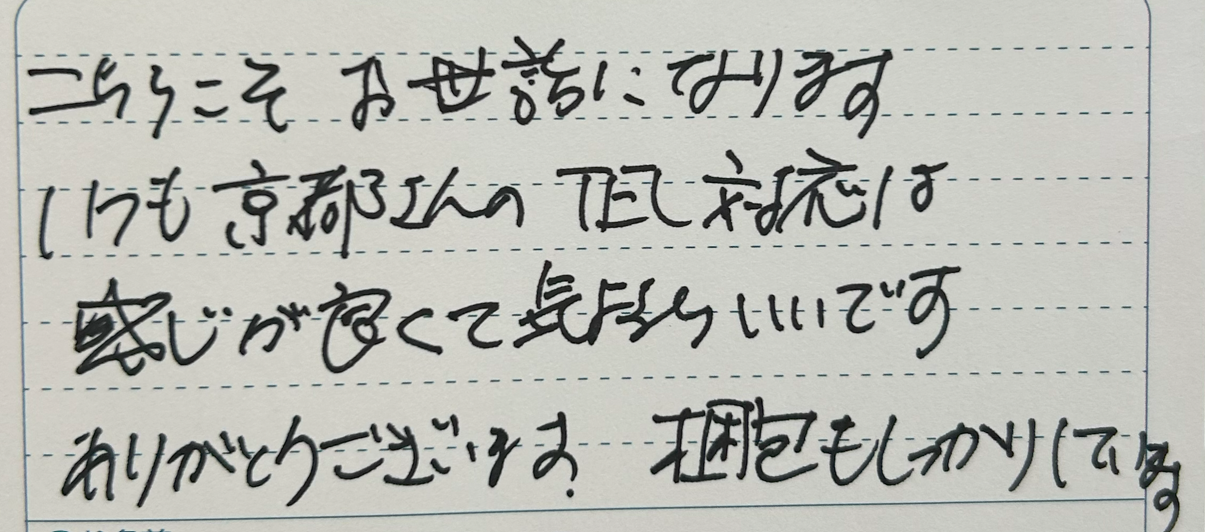 こちらこそ お世話になります
いつも京都さんの TEL対応は
感じが良くて気持ちいいです
ありがとうございます。 梱包もしっかりしてます